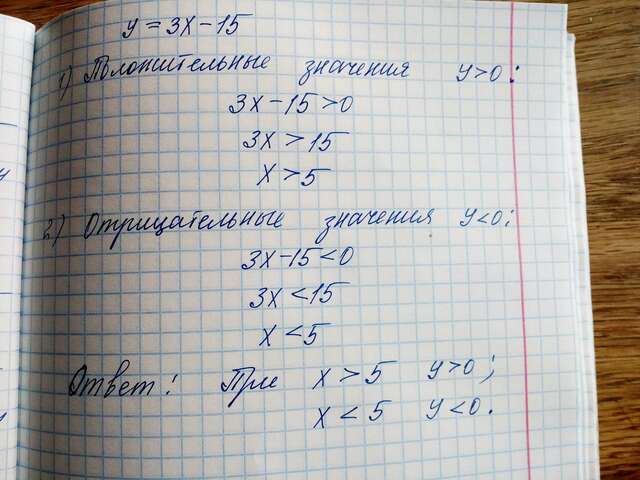 y = 3x - 15
1) Положительные значения y > 0:
3x - 15 > 0
3x > 15
x > 5
2) Отрицательные значения y < 0:
3x - 15 < 0
3x < 15
x < 5
Ответ: При x > 5 y > 0;
x < 5 y < 0.